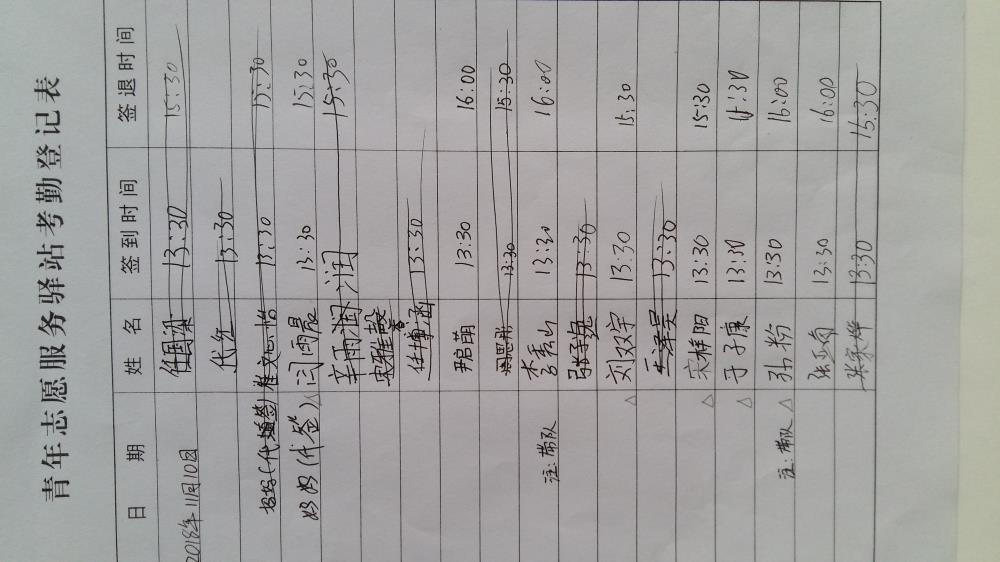 青年志愿服务驿站考勤登记表
日期 姓名 签到时间 签退时间
2018年11月10日 任国梁 13:30 15:30
代允 13:30
妈妈(代签) 崔文心怡 13:30 15:30
妈妈(代签) 闫雨晨 13:30 15:30
辛雨润 润 15:30
宋雅馨
任博涵 13:30
尹启萌 13:30 16:00
13:30 15:30
注:带队 李秀山 13:30 16:00
13:30
△ 刘双宇 13:30 15:30
王泽昊 13:30
△ 宋梓阳 13:30 15:30
△ 于子廉 13:30 15:30
注:带队 △ 孙怡 13:30 16:00
张亚茹 13:30 16:00
张家烨 13:30 15:30